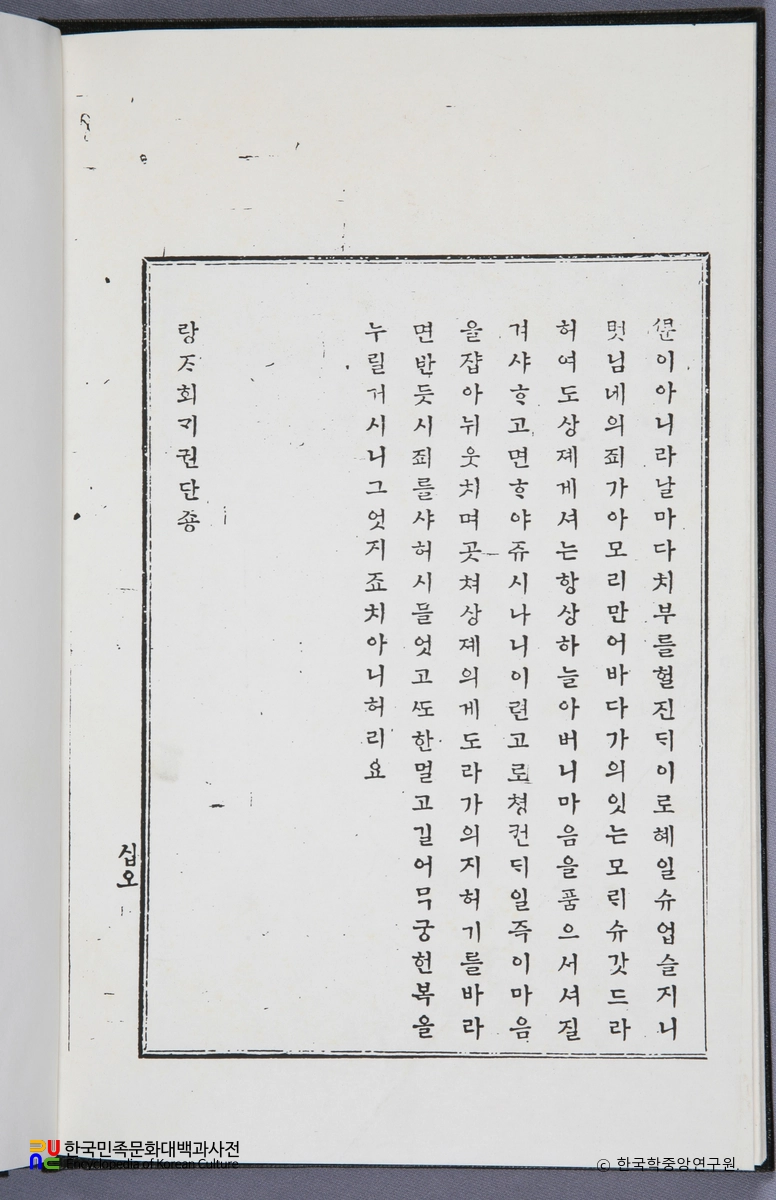 이아니라날마다치부를혈진ᄃᆡ이로혜일슈업슬지니
멋님네의죄가아모리만어바다가의잇는모ᄅᆡ슈갓드라
허여도상졔게셔는항상하늘아버니마음을품으서셔질
겨샤ᄒᆞ고면ᄒᆞ야쥬시나니이런고로쳥컨ᄃᆡ일즉이마음
을쟙아뉘웃치며곳쳐상졔의게도라가의지허기를바라
면반듯시죄를샤허시믈엇고ᄯᅩ한멀고길어무궁헌복을
누릴거시니그엇지죠치아니허리요
랑ᄌᆞ회ᄀᆡ권단죵
십오
한국민족문화대백과사전
Encyclopedia of Korean Culture
© 한국학중앙연구원